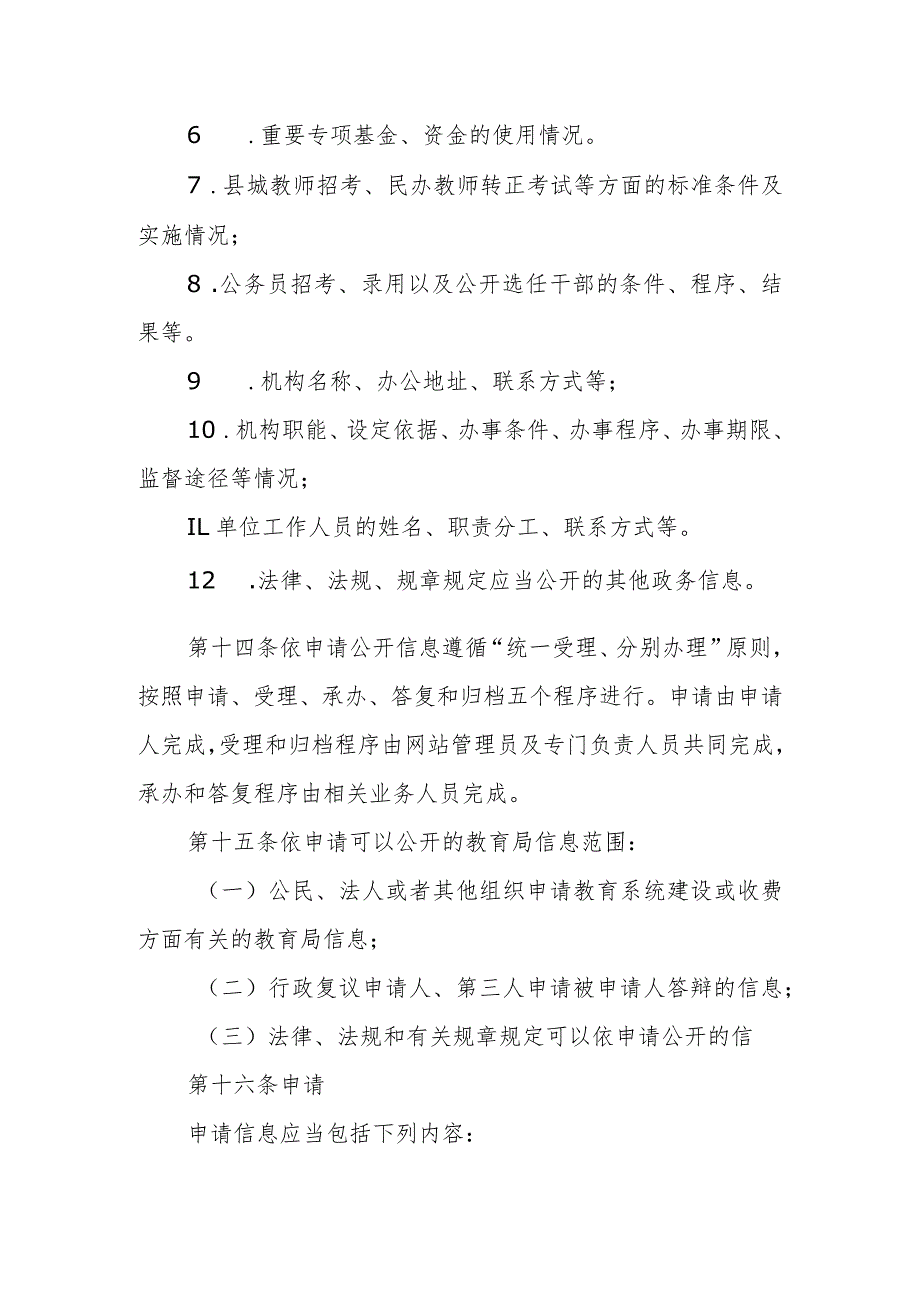 6 .重要专项基金、资金的使用情况。
7 .县城教师招考、民办教师转正考试等方面的标准条件及
实施情况；
8 .公务员招考、录用以及公开选任干部的条件、程序、结
果等。
9 .机构名称、办公地址、联系方式等；
10 .机构职能、设定依据、办事条件、办事程序、办事期限、
监督途径等情况；
IL单位工作人员的姓名、职责分工、联系方式等。
12 .法律、法规、规章规定应当公开的其他政务信息。
第十四条依申请公开信息遵循“统一受理、分别办理”原则，
按照申请、受理、承办、答复和归档五个程序进行。申请由申请
人完成，受理和归档程序由网站管理员及专门负责人员共同完成，
承办和答复程序由相关业务人员完成。
第十五条依申请可以公开的教育局信息范围：
（一）公民、法人或者其他组织申请教育系统建设或收费
方面有关的教育局信息；
（二）行政复议申请人、第三人申请被申请人答辩的信息；
（三）法律、法规和有关规章规定可以依申请公开的信
第十六条申请
申请信息应当包括下列内容：